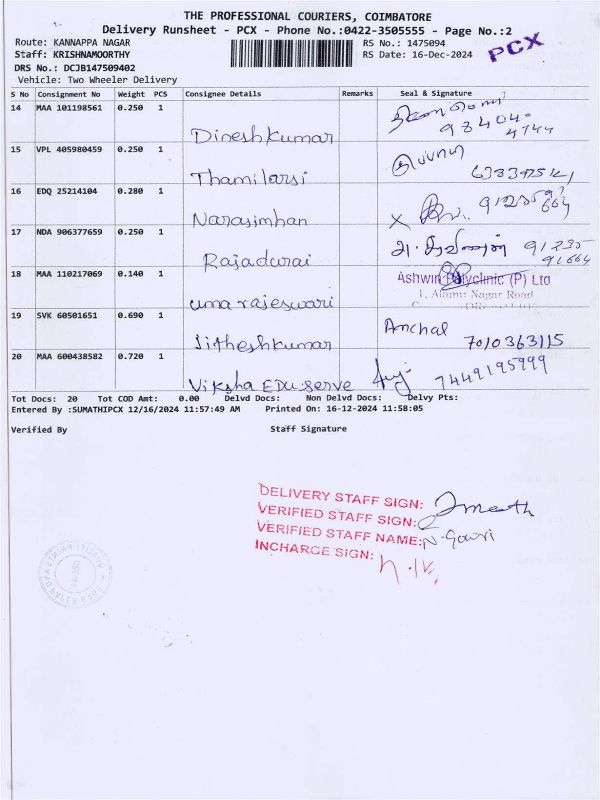 THE PROFESSIONAL COURIERS, COIMBATORE
Delivery Runsheet - PCX - Phone No.:0422-3505555 - Page No.:2
Route: KANNAPPA NAGAR RS No.: 1475094 PCX
Staff: KRISHNAMOORTHY RS Date: 16-Dec-2024
DRS No.: DCJB147509402
Vehicle: Two Wheeler Delivery
S No Consignment No Weight PCS Consignee Details Remarks Seal & Signature
14 MAA 101198561 0.250 1
Dineshkumar
15 VPL 405980459 0.250 1
Thamilarsi
16 EDQ 25214104 0.280 1
Narasimhan
17 NDA 906377659 0.250 1
Rajadurai
18 MAA 110217069 0.140 1 Ashwin Polyclinic (P) Ltd
uma rajeswari
19 SVK 60501651 0.690 1 Anchal
Jitheshkumar 7010363115
20 MAA 600438582 0.720 1
Viksha EDU serve 7449195999
Tot Docs: 20 Tot COD Amt: 0.00 Delvd Docs: Non Delvd Docs: Delvy Pts:
Entered By :SUMATHIPCX 12/16/2024 11:57:49 AM Printed On: 16-12-2024 11:58:05
Verified By Staff Signature
DELIVERY STAFF SIGN:
VERIFIED STAFF SIGN:
VERIFIED STAFF NAME: N. Gowri
INCHARGE SIGN: